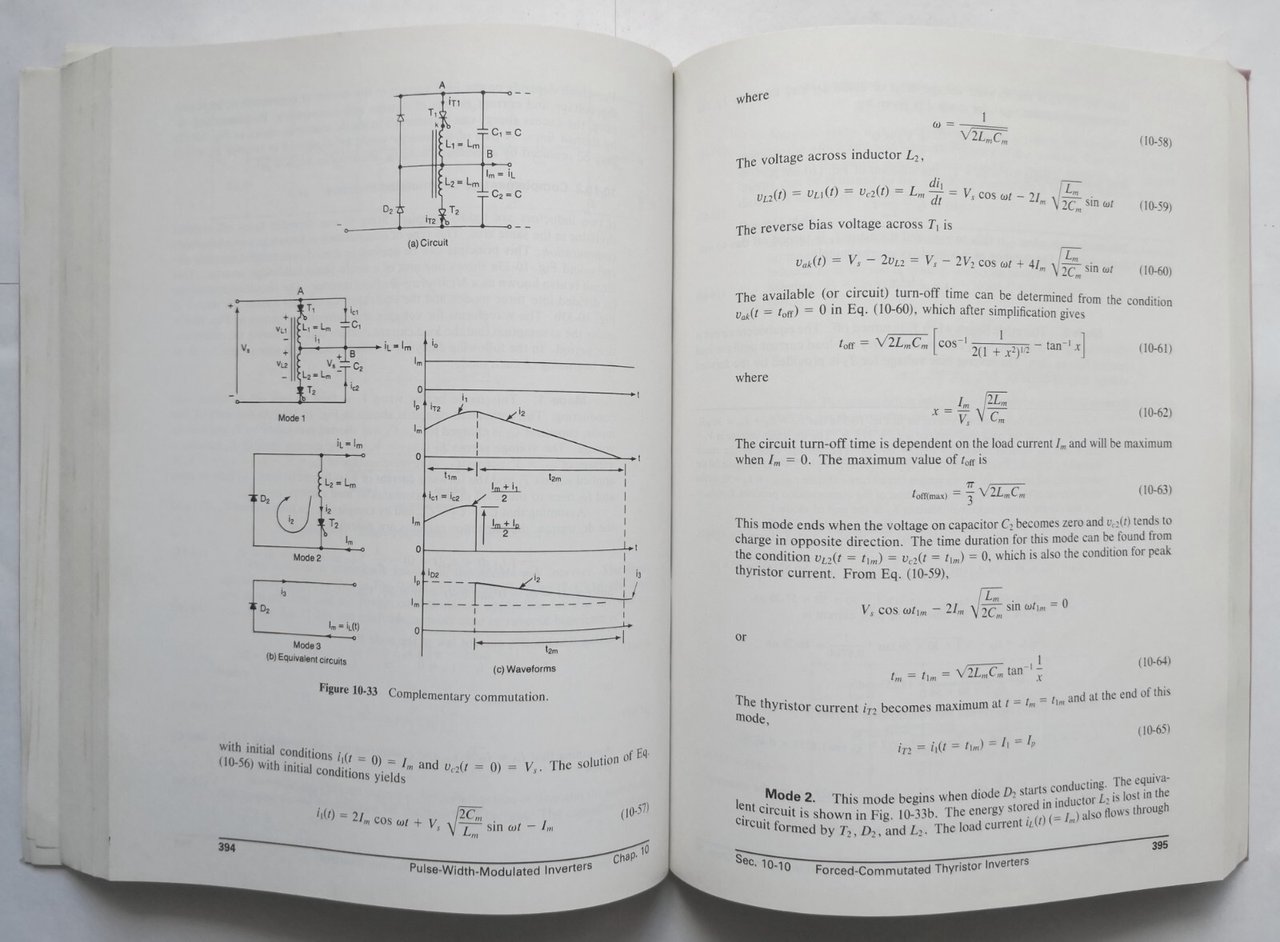 A
iT1
T1
k
C1 = C
L1 = Lm
B
Im = iL
L2 = Lm
C2 = C
D2
T2
iT2
(a) Circuit
A
+
T1
ic1
+
vL1
L1 = Lm
C1
−
i1
Vs
B
iL = Im
+
+
vL2
Vs
C2
−
L2 = Lm
−
T2
ic2
−
Mode 1
iL = Im
L2 = Lm
D2
i2
i2
T2
Im
Mode 2
i3
D2
Im = iL(t)
Mode 3
(b) Equivalent circuits
io
Im
0
t
Ip
iT2
i1
i2
Im
0
t
t1m
t2m
ic1 = ic2
Im + i1
2
Im
Im + Ip
2
0
t
iD2
Ip
i2
i3
Im
0
t
t2m
(c) Waveforms
Figure 10-33 Complementary commutation.
with initial conditions i1(t = 0) = Im and vc2(t = 0) = Vs. The solution of Eq.
(10-56) with initial conditions yields
i1(t) = 2Im cos ωt + Vs √(2Cm/Lm) sin ωt − Im (10-57)
394
Pulse-Width-Modulated Inverters Chap. 10
where
ω = 1/√(2LmCm) (10-58)
The voltage across inductor L2,
vL2(t) = vL1(t) = vc2(t) = Lm di1/dt = Vs cos ωt − 2Im √(Lm/2Cm) sin ωt (10-59)
The reverse bias voltage across T1 is
vak(t) = Vs − 2vL2 = Vs − 2V2 cos ωt + 4Im √(Lm/2Cm) sin ωt (10-60)
The available (or circuit) turn-off time can be determined from the condition
vak(t = toff) = 0 in Eq. (10-60), which after simplification gives
toff = √(2LmCm) [cos−1 1/(2(1 + x2)1/2) − tan−1 x] (10-61)
where
x = Im/Vs √(2Lm/Cm) (10-62)
The circuit turn-off time is dependent on the load current Im and will be maximum
when Im = 0. The maximum value of toff is
toff(max) = π/3 √(2LmCm) (10-63)
This mode ends when the voltage on capacitor C2 becomes zero and vc2(t) tends to
charge in opposite direction. The time duration for this mode can be found from
the condition vL2(t = t1m) = vc2(t = t1m) = 0, which is also the condition for peak
thyristor current. From Eq. (10-59),
Vs cos ωt1m − 2Im √(Lm/2Cm) sin ωt1m = 0
or
tm = t1m = √(2LmCm) tan−1 1/x (10-64)
The thyristor current iT2 becomes maximum at t = tm = t1m and at the end of this
mode,
iT2 = i1(t = t1m) = I1 = Ip (10-65)
Mode 2. This mode begins when diode D2 starts conducting. The equiva-
lent circuit is shown in Fig. 10-33b. The energy stored in inductor L2 is lost in the
circuit formed by T2, D2, and L2. The load current iL(t) (= Im) also flows through
Sec. 10-10 Forced-Commutated Thyristor Inverters
395